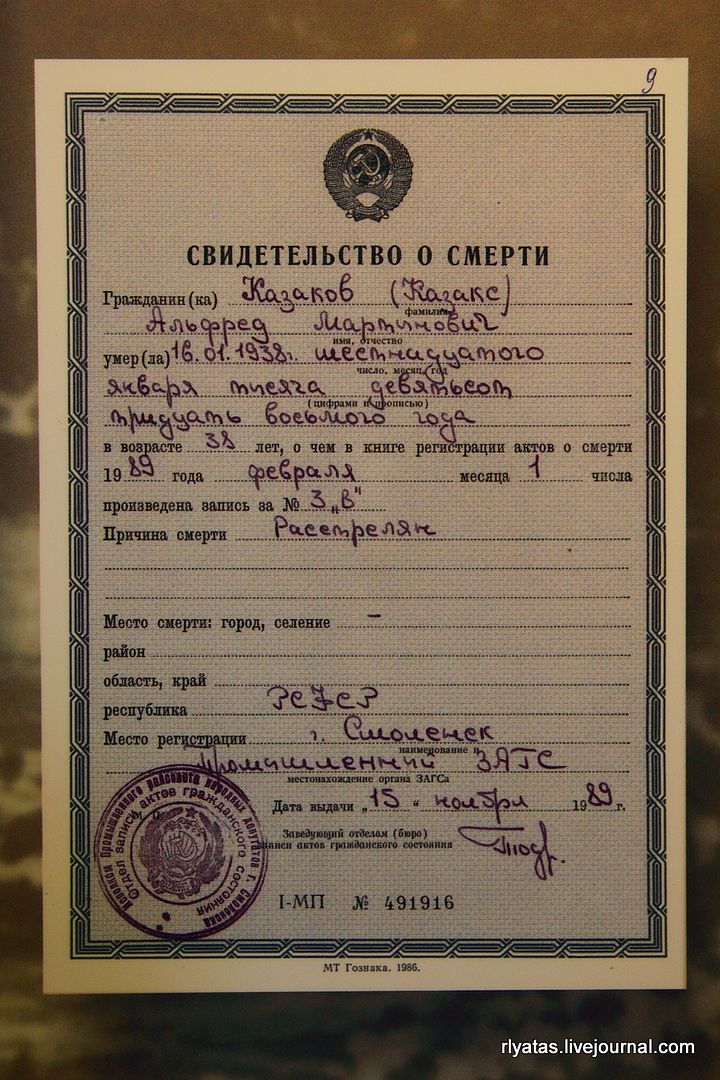 9
СВИДЕТЕЛЬСТВО О СМЕРТИ
Гражданин (ка) Казаков (Казакс)
фамилия
Альфред Мартынович
имя, отчество
умер (ла) 16.01.1938г. шестнадцатого
число, месяц, год
января тысяча девятьсот
(цифрами и прописью)
тридцать восьмого года
в возрасте 38 лет, о чем в книге регистрации актов о смерти
1989 года февраля месяца 1 числа
произведена запись за № 3 „в"
Причина смерти Расстрелян
Место смерти: город, селение —
район
область, край
республика РСФСР
Место регистрации г. Смоленск
наименование и
Промышленный ЗАГС
местонахождение органа ЗАГСа
Дата выдачи „15" ноября 1989 г.
Заведующий отделом (бюро)
записи актов гражданского состояния
Исполком Промышленного райсовета народных депутатов г. Смоленска
Отдел записи актов гражданского состояния
I-МП № 491916
МТ Гознака. 1986.
rlyatas.livejournal.com